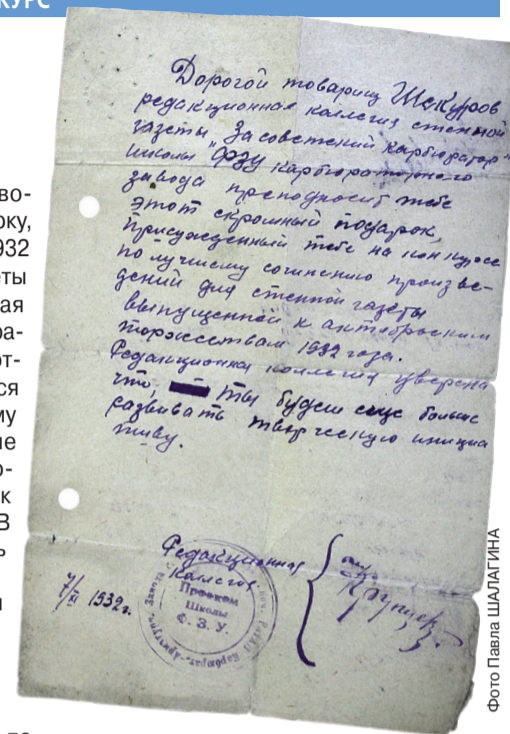 КУРС
во-
рку,
932
еты
ая
ра-
от-
ся
му
ие
о-
к
В
ь
Дорогой товарищ Шакуров
редакционная коллегия стенной
газеты "За советский карбюратор"
школы "ФЗУ карбюраторного
завода преподносит тебе
этот скромный подарок,
присужденный тебе на конкурсе
по лучшему сочинению произве-
дений для стенной газеты
выпущенной к октябрьским
торжествам 1932 года.
Редакционная коллегия уверена
что, ты будеш еще больше
развивать творческую инициа
тиву.
Редакционная
коллегия
7/XI 1932 г.
Профком
Школы
Ф. З. У.
Фото Павла ШАЛАГИНА